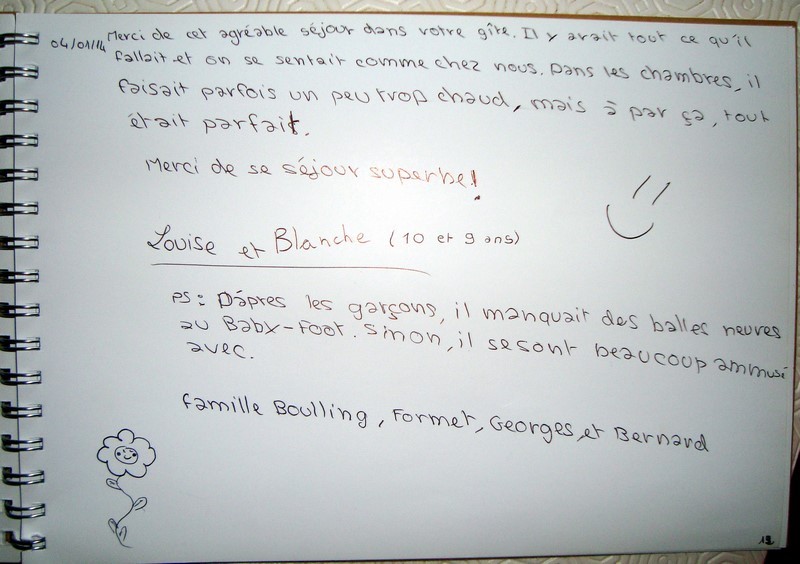 04/01/14 Merci de cet agréable séjour dans votre gîte. Il y avait tout ce qu'il
fallait et on se sentait comme chez nous. Dans les chambres, il
faisait parfois un peu trop chaud, mais à par ça, tout
était parfait.
Merci de se séjour superbe!
Louise et Blanche (10 et 9 ans)
PS: D'âpres les garçons, il manquait des balles neuves
au Baby-Foot. Sinon, il se sont beaucoup ammusé
avec.
Famille Boulling, Formet, Georges, et Bernard
12